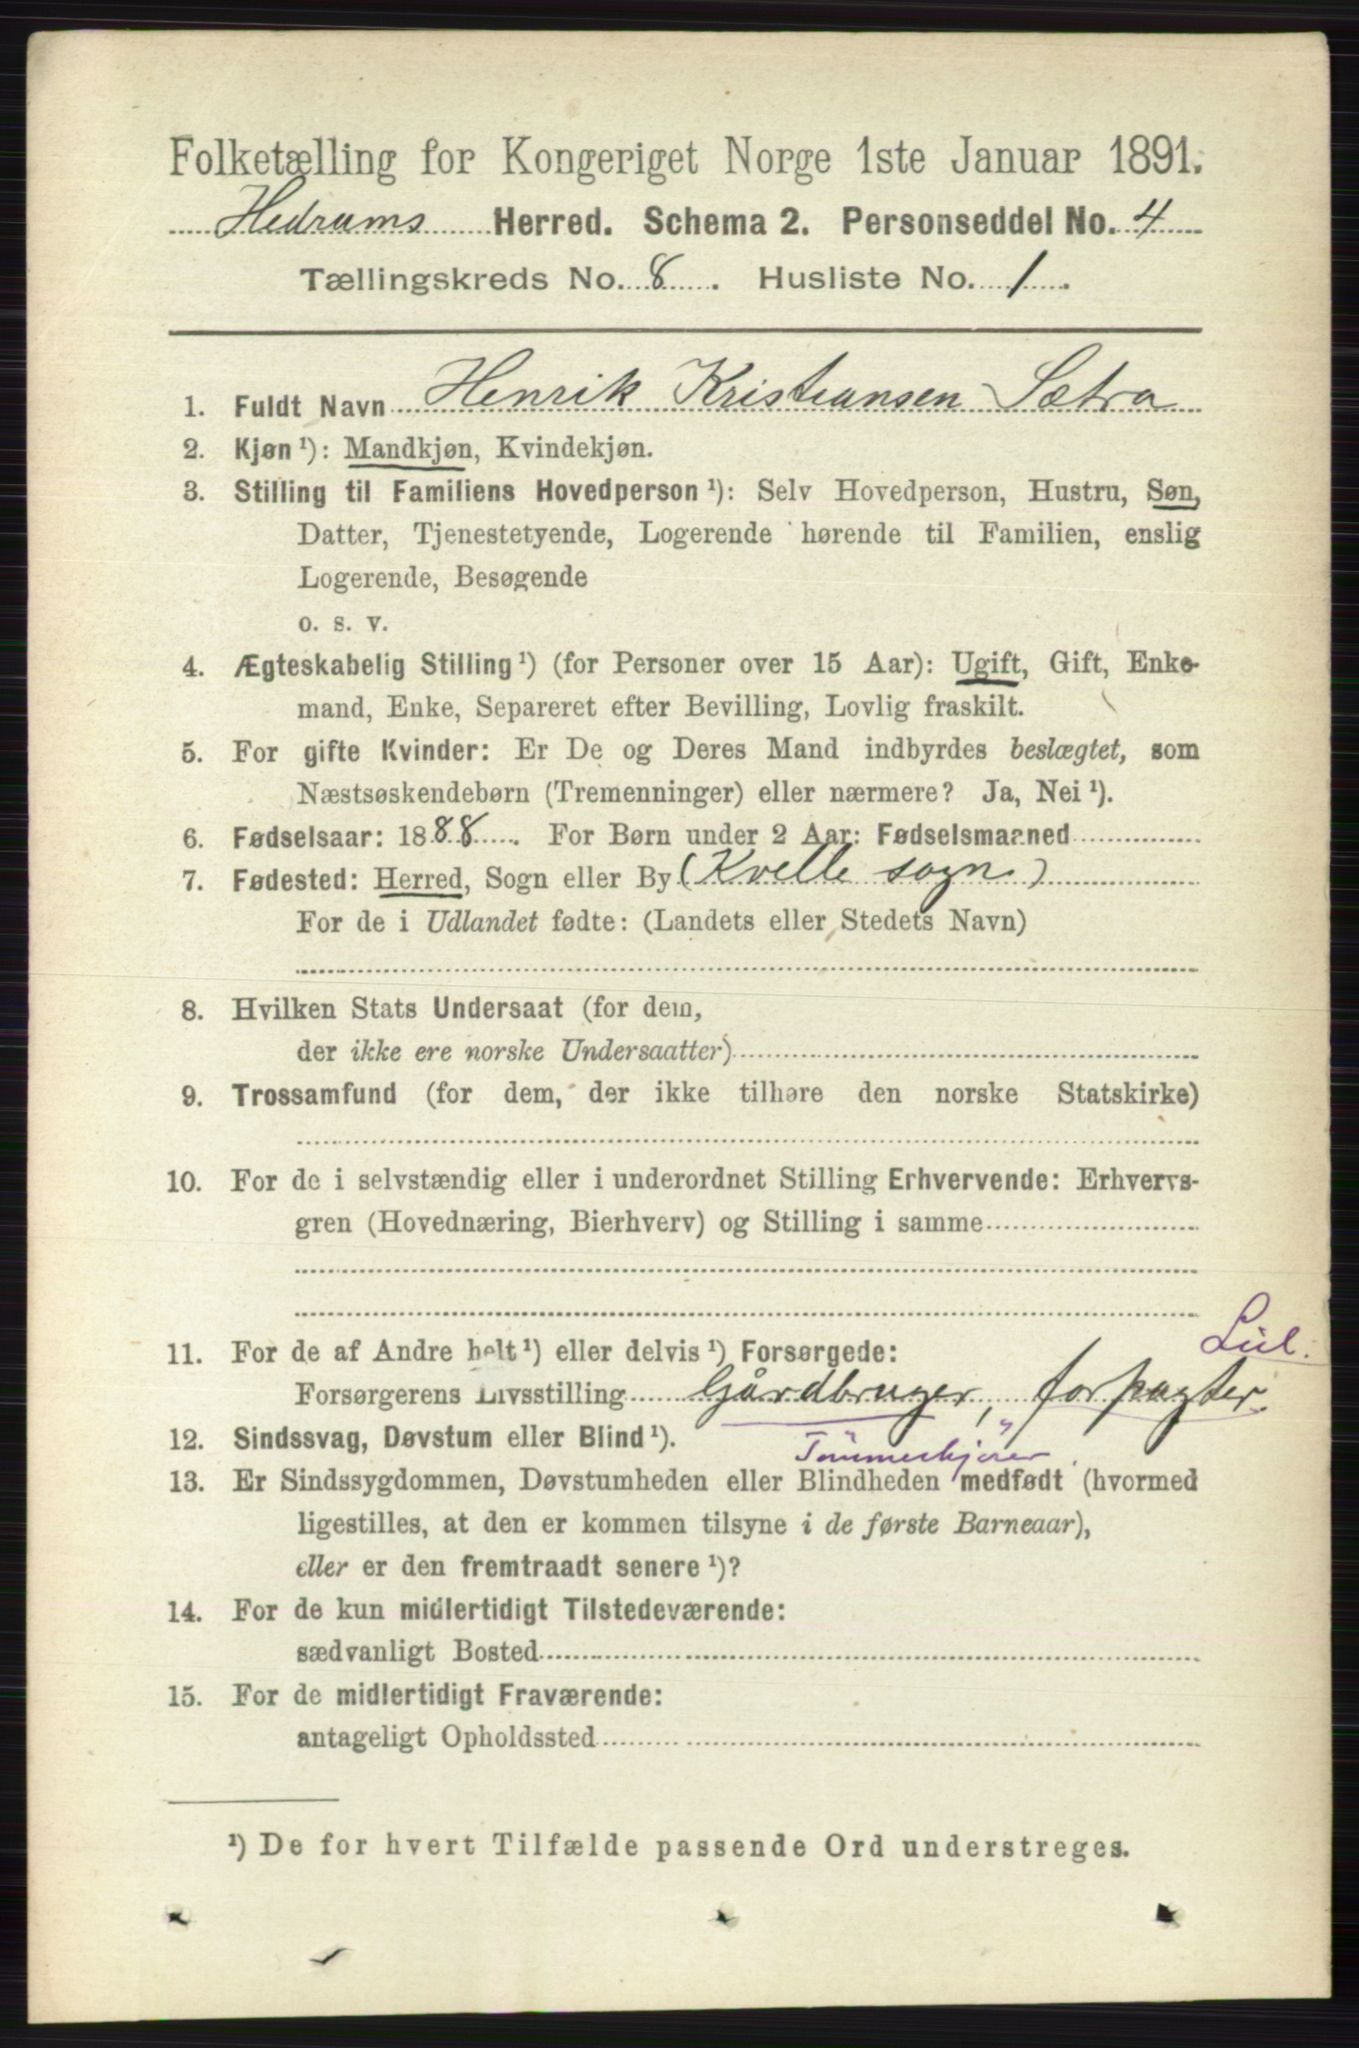 Folketælling for Kongeriget Norge 1ste Januar 1891.
Hedrums Herred. Schema 2. Personseddel No. 4
Tællingskreds No. 8. Husliste No. 1.
1. Fuldt Navn Henrik Kristiansen Sætra
2. Kjøn ¹): Mandkjøn, Kvindekjøn.
3. Stilling til Familiens Hovedperson ¹): Selv Hovedperson, Hustru, Søn,
Datter, Tjenestetyende, Logerende hørende til Familien, enslig
Logerende, Besøgende
o. s. v.
4. Ægteskabelig Stilling ¹) (for Personer over 15 Aar): Ugift, Gift, Enke-
mand, Enke, Separeret efter Bevilling, Lovlig fraskilt.
5. For gifte Kvinder: Er De og Deres Mand indbyrdes beslægtet, som
Næstsøskendebørn (Tremenninger) eller nærmere? Ja, Nei ¹).
6. Fødselsaar: 1888. For Børn under 2 Aar: Fødselsmaaned
7. Fødested: Herred, Sogn eller By (Kvelle sogn)
For de i Udlandet fødte: (Landets eller Stedets Navn)
8. Hvilken Stats Undersaat (for dem,
der ikke ere norske Undersaatter)
9. Trossamfund (for dem, der ikke tilhøre den norske Statskirke)
10. For de i selvstændig eller i underordnet Stilling Erhvervende: Erhvervs-
gren (Hovednæring, Bierhverv) og Stilling i samme
Lul.
11. For de af Andre helt ¹) eller delvis ¹) Forsørgede:
Forsørgerens Livsstilling Gårdbruger, forpagter.
12. Sindssvag, Døvstum eller Blind ¹).
Tømmerkjører
13. Er Sindssygdommen, Døvstumheden eller Blindheden medfødt (hvormed
ligestilles, at den er kommen tilsyne i de første Barneaar),
eller er den fremtraadt senere ¹)?
14. For de kun midlertidigt Tilstedeværende:
sædvanligt Bosted
15. For de midlertidigt Fraværende:
antageligt Opholdssted
¹) De for hvert Tilfælde passende Ord understreges.